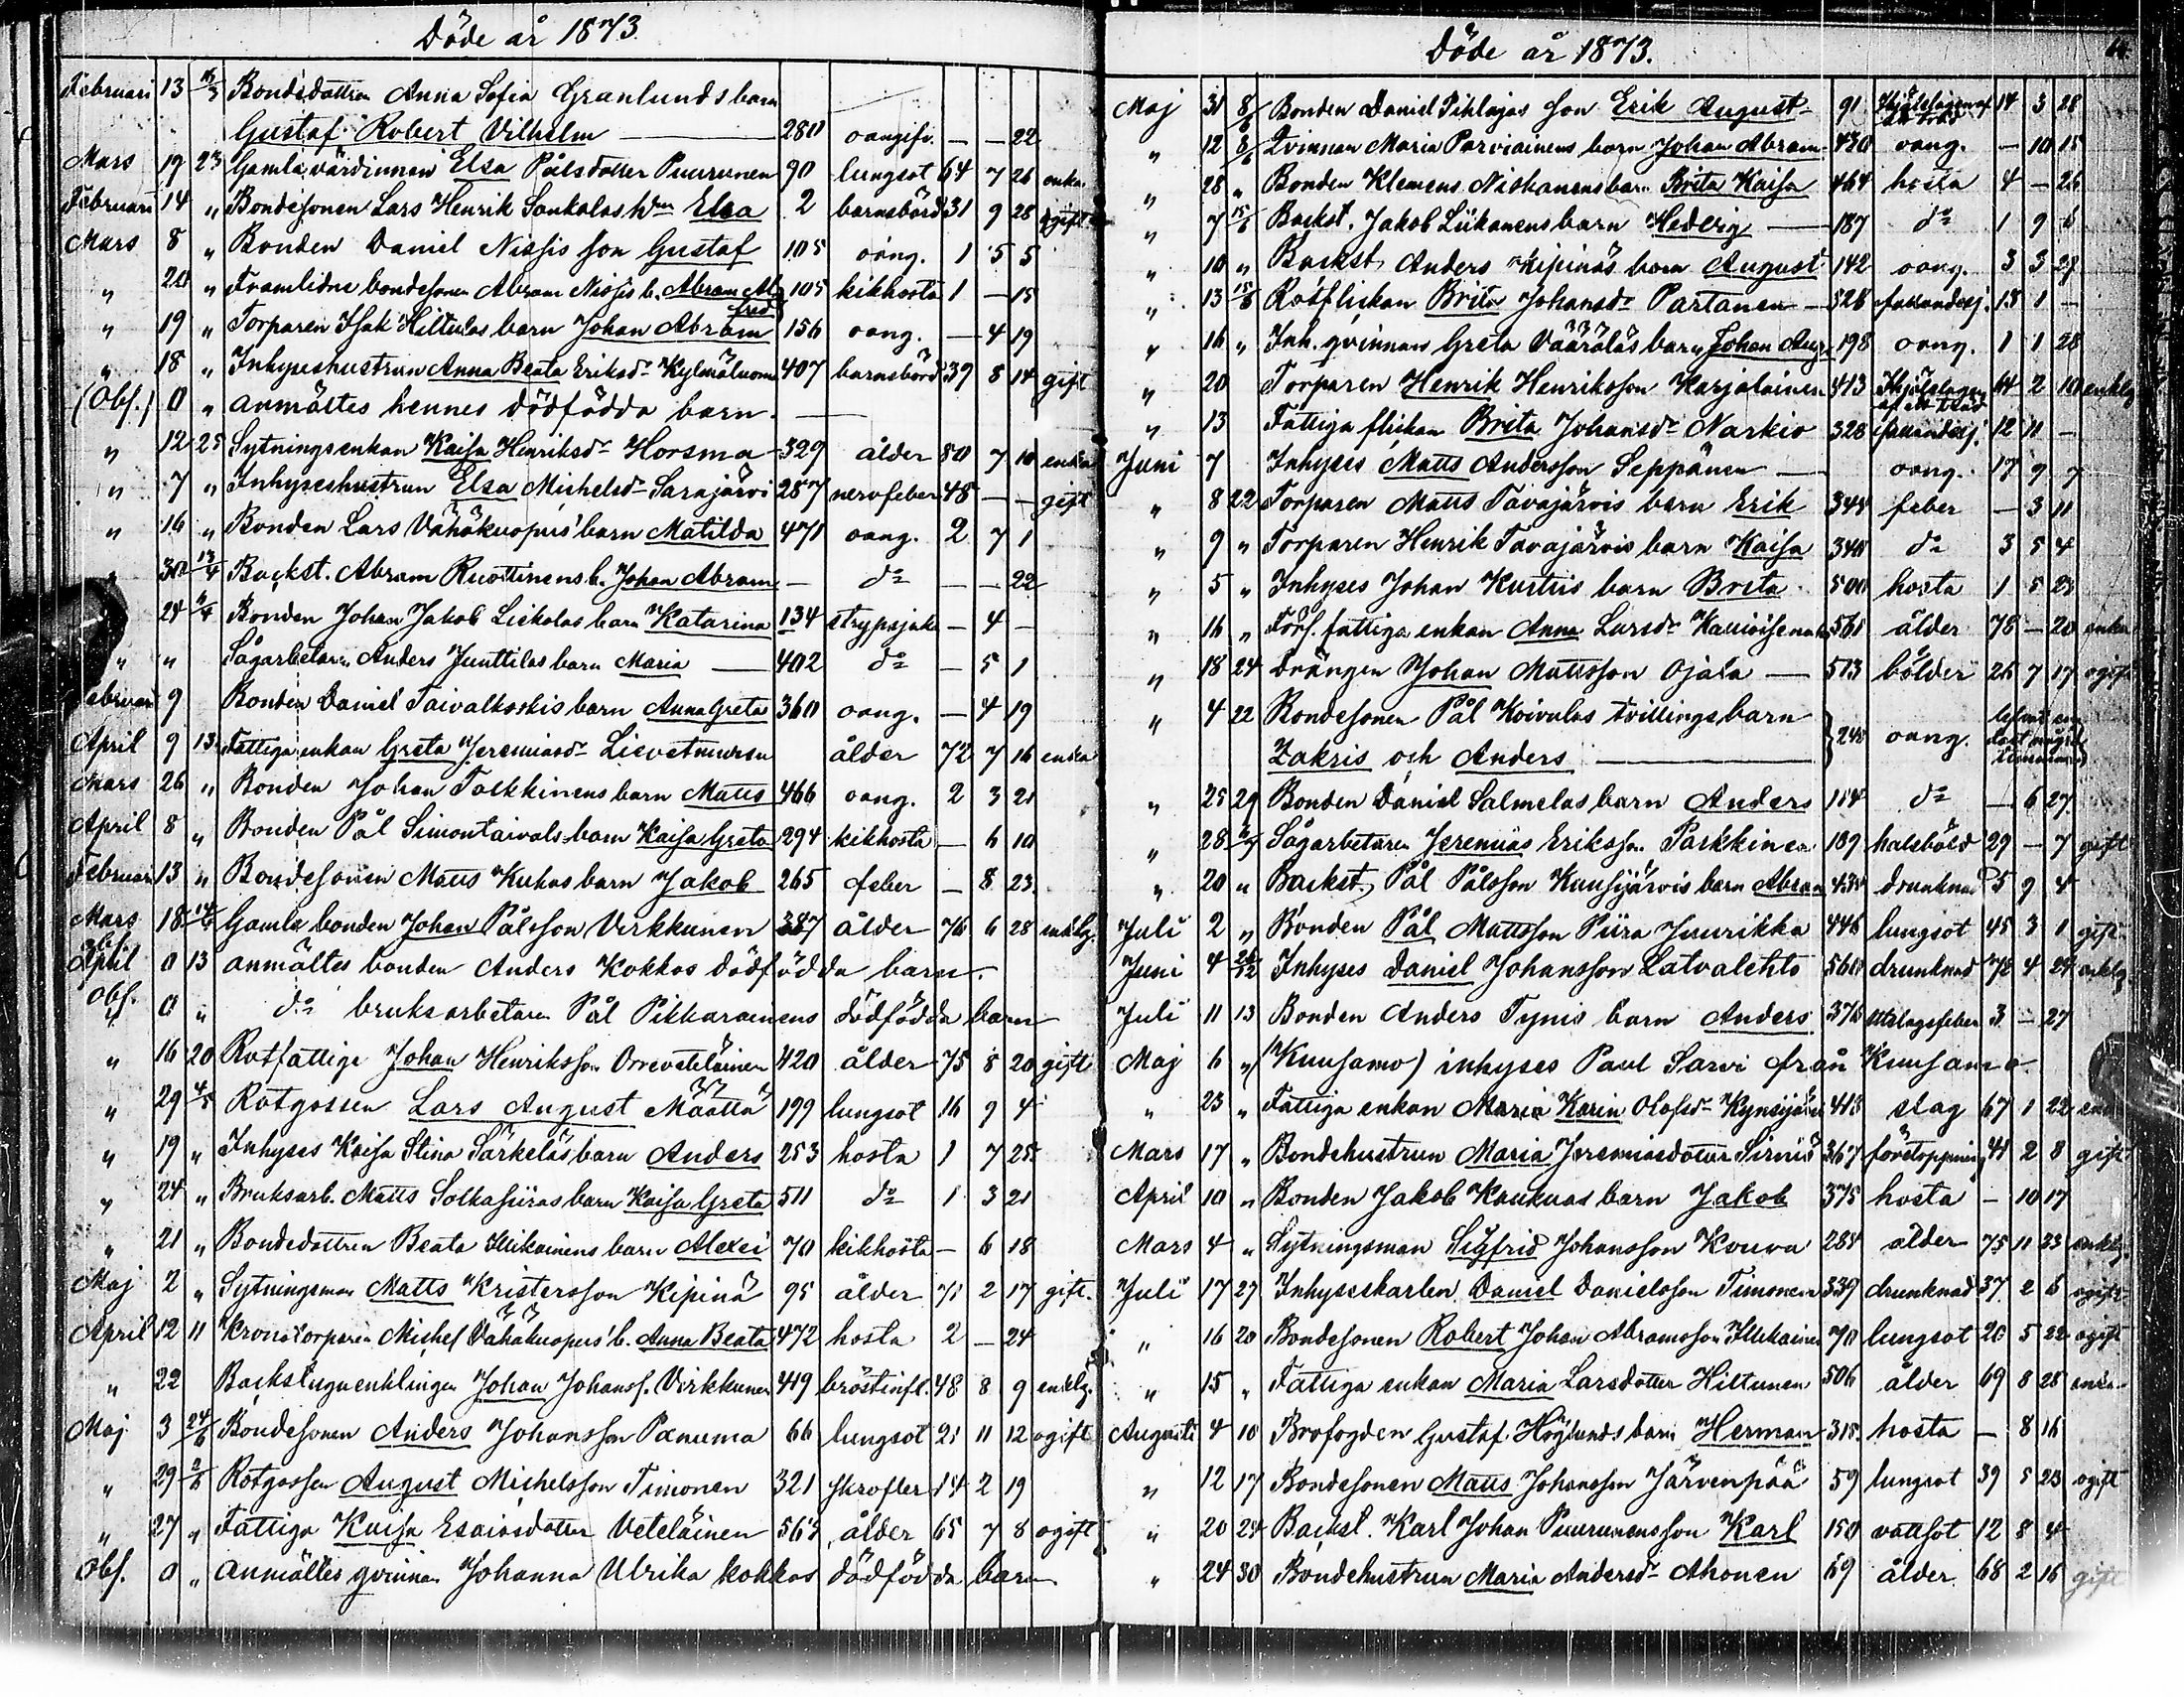 Döde år 1873.
Februari 13 Bondedottren Anna Sofia Granlunds barn
Gustaf Robert Vilhelm — 280 oangifv. — — 22
Mars 19 23 Gamla värdinnan Elsa Pålsdotter Puurunen 90 lungsot 64 7 26 enka
Februari 14 " Bondesonen Lars Henrik Sankalas h:u Elsa 2 barnsbörd 31 9 28 gift
Mars 8 " Bonden Daniel Nissis son Gustaf 105 oang. 1 5 5
" 20 " Framlidne bondesonen Abram Nissis b. Abram Alfred 105 kikhosta 1 — 15
" 19 " Torparen Isak Hiltulas barn Johan Abram 156 oang. — 4 19
" 18 " Inhyseshustrun Anna Beata Eriksd:r 407 barnsbörd 39 8 14 gift
(Obs.) 0 " anmältes hennes dödfödda barn. —
" 12 25 Sytningsenkan Kaisa Henriksd:r Horsma 329 ålder 80 7 10 enka
" 7 " Inhyseshustrun Elsa Michelsd:r Sarajärvi 287 nervfeber 48 — — gift
" 16 " Bonden Lars Vähäkuopus' barn Matilda 471 oang. 2 7 1
" 30 13/4 Backst. Abram Ruottinens b. Johan Abram — d:o — — 22
24 Bonden Johan Jakob Leskelas barn Katarina 134 strypsjuka — 4 —
" " Sågarbetaren Anders Junttilas barn Maria — 402 d:o — 5 1
Februari 9 Bonden Daniel Taivalkoskis barn Anna Greta 360 oang. — 4 19
April 9 13 Fattiga enkan Greta Jeremiasd:r ålder 72 7 16 enka
Mars 26 " Bonden Johan Tolkkinens barn Matts 466 oang. 2 3 21
April 8 " Bonden Pål Simontaivals barn Kaisa Greta 294 kikhosta — 6 10
Februari 13 " Bondesonen Matts Kuhas barn Jakob 265 feber — 8 23
Mars 18 Gamla bonden Johan Pålsson Virkkunen 387 ålder 76 6 28 enklg.
Obs. April 0 13 anmältes bonden Anders Kokkos dödfödda barn.
Obs. 0 " d:o bruksarbetaren Pål Pikkarainens dödfödda barn
" 16 20 Rotfattige Johan Henriksson 420 ålder 75 8 20 gift
" 29 4/5 Rotgossen Lars August Määttä 199 lungsot 16 9 4
" 19 " Inhyses Kaisa Stina Särkeläs barn Anders 253 hosta 1 7 25
" 24 " Bruksarb. Matts barn Kaisa Greta 511 d:o 1 3 21
" 21 " Bondedottren Beata Illikainens barn Alexei 70 kikhosta — 6 18
Maj 2 " Sytningsman Matts Kristersson Kipinä 95 ålder 71 2 17 gift.
April 12 11 Kronotorparen Michel Vähäkuopus' b. Anna Beata 472 hosta 2 — 24
" 22 Backstuguenklingen Johan Johanss. Virkkunen 419 bröstinfl. 48 8 9 enklg.
Maj 3 24/6 Bondesonen Anders Johansson Panuma 66 lungsot 21 11 12 ogift
" 29 Rotgossen August Michelsson Timonen 321 skrofler 14 2 19
" 27 " Fattiga Kaisa Esaiasdotter Veteläinen 563 ålder 65 7 8 ogift
Obs. 0 " anmältes qvinnan Johanna Ulrika Kokkos dödfödda barn
Döde år 1873.
Maj 31 8/6 Bonden Daniel Pihlajas son Erik August 91 Ihjelslagen af ett träd 14 3 28
" 12 8/6 Qvinnan Maria Parviainens barn Johan Abram 430 oang. — 10 15
" 28 " Bonden Klemens Niskanens barn Brita Kaisa 464 hosta 4 — 26
" 7 15/6 Backst. Jakob Liikanens barn Hedvig — 187 d:o 1 9 6
" 10 " Backst. Anders Kipinäs barn August 142 oang. 3 3 29
" 13 15/6 Rotflickan Brita Johansd:r Partanen — 528 fallandesj. 13 1 —
" 16 " Inh. qvinnans Greta Vääräläs barn Johan Aug. 198 oang. 1 1 28
" 20 Torparen Henrik Henriksson Karjalainen 413 Ihjelslagen af ett träd 64 2 10 enklg
" 13 Fattiga flickan Brita Johansd:r Narkio 328 fallandesj. 12 11 —
Juni 7 Inhyses Matts Andersson Seppänen — oang. 17 9 7
" 8 22 Torparen Matts Tavajärvis barn Erik 344 feber — 3 11
" 9 " Torparen Henrik Tavajärvis barn Kaisa 340 d:o 3 5 4
" 5 " Inhyses Johan Kurttis barn Brita 500 hosta 1 5 23
" 16 " Förs. fattiga enkan Anna Larsd:r 561 ålder 78 — 20 enka
" 18 24 Drängen Johan Mattsson Ojala — 573 bölder 26 7 17 ogift
" 4 22 Bondesonen Pål Koivulas tvillingsbarn
Zakris och Anders — 240 oang.
" 25 29 Bonden Daniel Salmelas barn Anders 184 d:o — 6 27
" 28 Sågarbetaren Jeremias Eriksson Parkkinen 189 halsböld 29 — 7 gift
" 20 " Backst. Pål Pålsson Kuusijärvis barn Abram 434 drunknad 5 9 4
Juli 2 " Bonden Pål Mattsson Piira Juurikka 446 lungsot 45 3 1 gift
Juni 4 Inhyses Daniel Johansson Latvalehto 560 drunknad 72 4 24 enklg.
Juli 11 13 Bonden Anders Tynis barn Anders 376 utslagsfeber 3 — 27
Maj 6 " (Kuusamo) inhyses Paul Sarvi från Kuusamo.
" 23 " Fattiga enkan Maria Karin Olofsd:r 418 slag 67 1 22 enka
Mars 17 " Bondehustrun Maria Jeremiasdotter Sirniö 367 förstoppning 41 2 8 gift
April 10 " Bonden Jakob Kaukuas barn Jakob 375 hosta — 10 17
Mars 4 " Sytningsman Sigfrid Johansson Kouva 284 ålder 75 11 23 enklg.
Juli 17 27 Inhyseskarlen Daniel Danielsson Timonen 339 drunknad 37 2 6 ogift
" 16 20 Bondesonen Robert Johan Abramsson Illikainen 70 lungsot 20 5 22 ogift
" 15 " Fattiga enkan Maria Larsdotter Hiltunen 506 ålder 69 8 28 enka
Augusti 4 10 Brofogden Gustaf Höglunds barn Herman 315 hosta — 8 16
" 12 17 Bondesonen Matts Johansson Järvenpää 59 lungsot 39 5 23 ogift
" 20 24 Backst. Karl Johan Puurunens son Karl 150 vattsot 12 8 4
" 24 30 Bondehustrun Maria Andersd:r Ahonen 69 ålder 68 2 16 gift